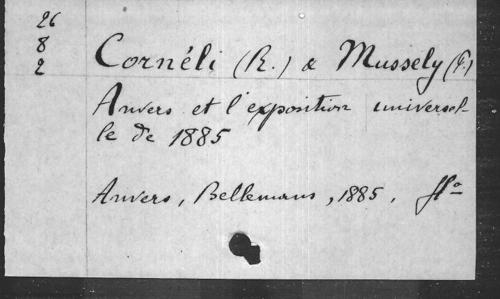 26
8
2
Cornéli (R.) & Mussely (P.)
Anvers et l'exposition universel-
le de 1885
Anvers, Bellemans, 1885, fº